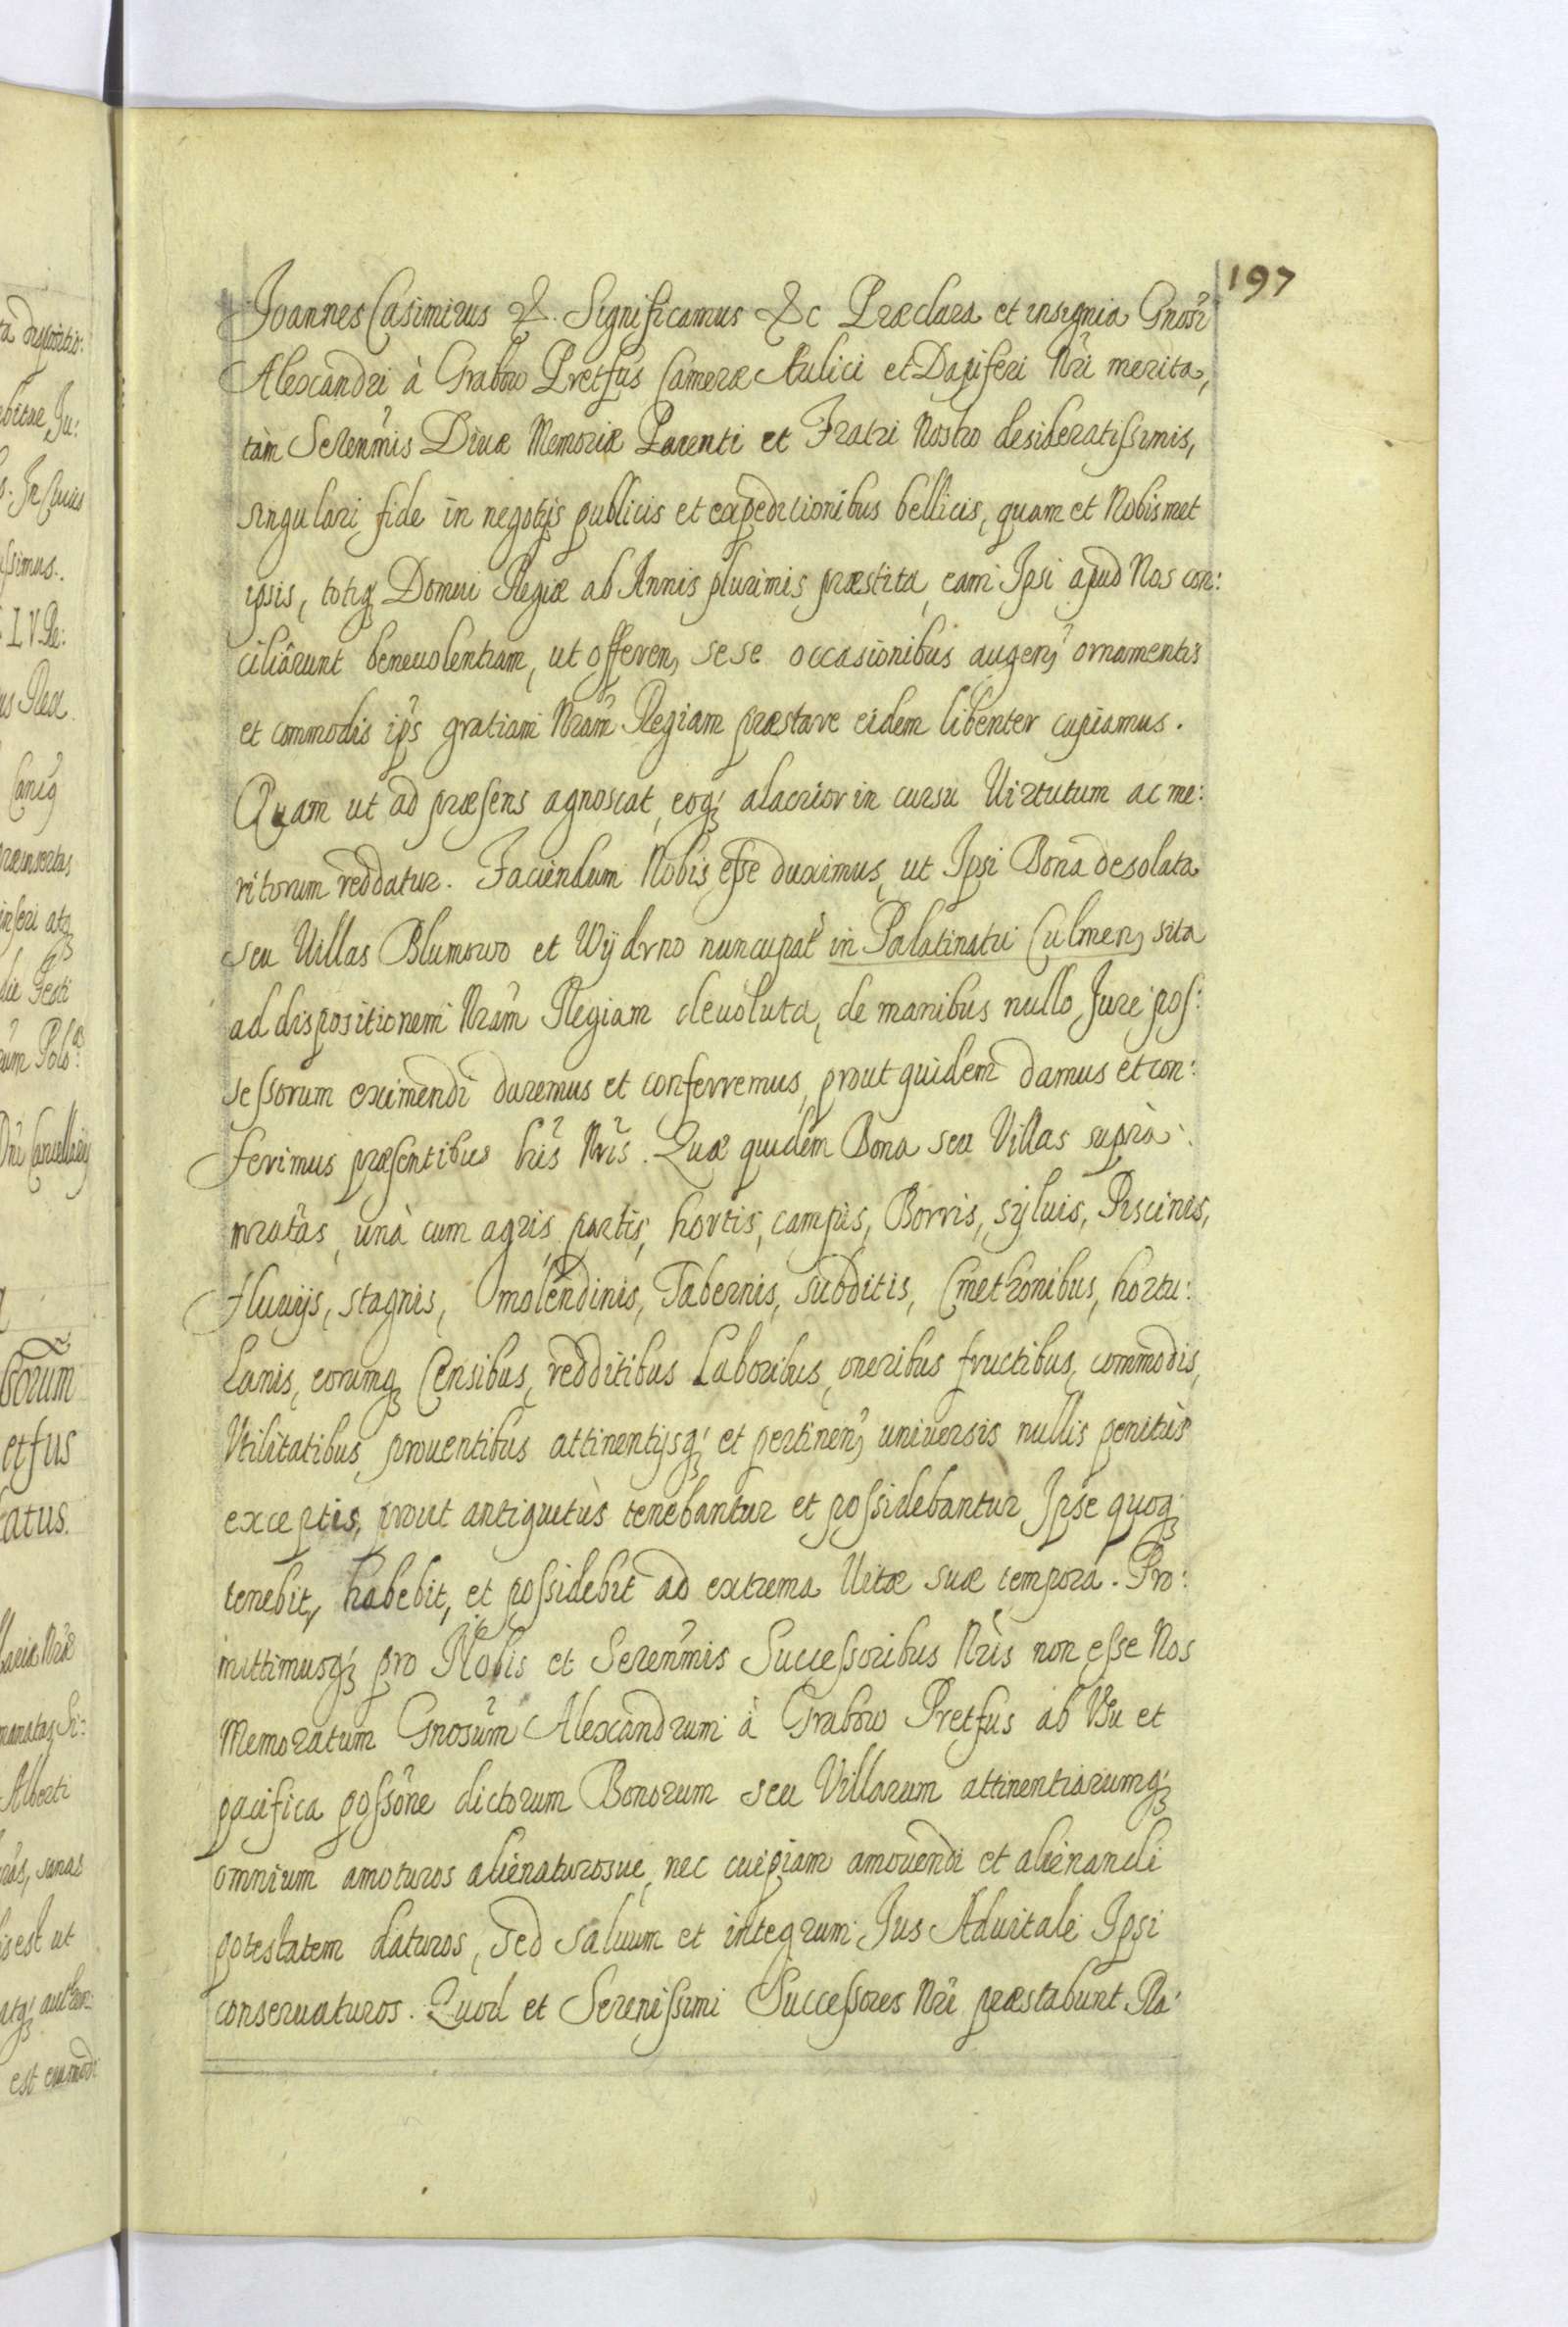 197
Joannes Casimirus &. Significamus &c Præclara et insignia Gnosi
Alexandri à Grabow Pretfus Cameræ Aulici et Dapiferi Nri merita,
tàm Serenmis Diuæ Memoriæ Parenti et Fratri Nostro desideratissimis,
singulari fide in negotijs publicis et expeditionibus bellicis, quam et Nobismet
ipsis, totiq Domui Regiæ ab Annis plurimis præstita, eam Ipsi apud Nos con:
ciliârunt beneuolentiam, ut offeren, sese occasionibus augen, ornamentis
et commodis ips gratiam Nram Regiam præstare eidem libenter cupiamus.
Quam ut ad præsens agnoscat, eoq alacrior in cursu Uirtutum ac me:
ritorum reddatur. Faciendum Nobis esse duximus, ut Ipsi Bona desolata
seu Uillas Blumowo et Wÿdrno nuncupat in Palatinatu Culmen, sita
ad dispositionem Nram Regiam deuoluta, de manibus nullo Jure pos:
sessorum eximendi daremus et conferremus, prout quidem damus et con:
ferimus præsentibus hīs Nrīs. Quæ quidem Bona seu Villas suprà:
mratas, unà cum agris, partis, hortis, campis, Borris, syluis, Piscinis,
fluuijs, stagnis, molendinis, Tabernis, subditis, Cmethonibus, hortu:
lanis, eorumq Censibus, redditibus Laboribus, oneribus fructibus, commodis,
Utilitatibus, prouentibus attinentijsq et pertinen, universis nullis penitùs
exceptis, prout antiquitùs tenebantur et possidebantur Ipse quoq
tenebit, habebit, et possidebit ad extrema Uitæ suæ tempora. Pro:
mittimusq pro Nobis et Serenmis Successoribus Nris non esse Nos
Memoratum Gnosum Alexandrum à Grabow Pretfus ab Usu et
pacifica possone dictorum Bonorum seu Villarum attinentiarumq
omnium amoturos alienaturosue, nec cuipiam amouendi et alienandi
potestatem daturos, sed saluum et integrum Jus Aduitale Ipsi
conseruaturos. Quod et Serenissimi Successores Nri præstabunt. Ra: